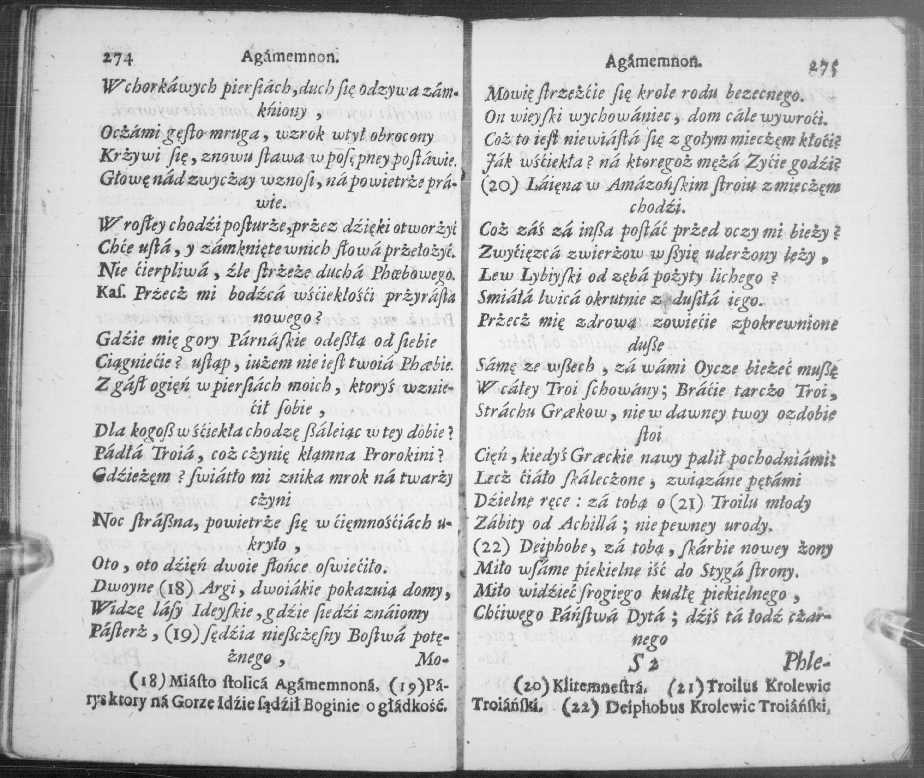 274 Agámemnon.
W chorkáwych pierśiách, duch się odzywa zám-
kniony,
Oczámi gęsto mruga, wzrok wtył obrocony
Krzywi się, znowu stawa w posępney postáwie.
Głowę nád zwyczay wznosi, ná powietrze prá-
wie.
W rosłey chodźi posturze, przez dźięki otworzyć
Chće ustá, y zámknięte wnich słowá przełożyć.
Nie ćierpliwá, źle strzeże duchá Phœbowego.
Kas. Przecz mi bodźcá wśćiekłośći przyrásta
nowego?
Gdźie mię gory Párnáskie odeszłą od siebie
Ciągniećie? ustąp, iużem nie iest twoiá Phœbie.
Z gáśł ogięń w pierśiách moich, ktoryś wznie-
ćił sobie,
Dla kogoß wśćiekła chodzę ßáleiąc w tey dobie?
Pádłá Troiá, coż czynię kłamna Prorokini?
Gdźieżęm? swiátło mi znika mrok ná twarży
czyni
Noc stráßna, powietrze się w ćięmnośćiách u-
kryło,
Oto, oto dźięń dwoie słońce oświećiło.
Dwoyne (18) Argi, dwoiákie pokazuią domy,
Widzę lásy Ideyskie, gdźie siedźi znáiomy
Pásterz, (19) sędźia nießczęsny Bostwá potę-
żnego, Mo-
(18) Miásto stolicá Agámemnoná, (19) Pá-
rys ktory ná Gorze Idźie sądźił Boginie o głádkość.
Agámemnon. 275
Mowię strzeżćie się krole rodu bezecnego.
On wieyski wychowániec, dom cále wywroći.
Coż to iest niewiástá się z gołym mieczęm kłoćić
Ják wśćiekła? ná ktoregoż mężá Zyćie godźić
(20) Láięna w Amázońskim stroiu z mieczęm
chodźi.
Coż záś zá inßa postáć przed oczy mi bieży?
Zwyćięzcá zwierzow w ßyię uderżony leży,
Lew Lybiyski od zębá pożyty lichego?
Smiáłá lwicá okrutnie z dusiłá iego.
Przecz mię zdrową zowiećie zpokrewnione
duße
Sámę ze wßech, zá wámi Oycze bieżeć mußę
W cáłey Troi schowány; Bráćie tarczo Troi,
Stráchu Grækow, nie w dawney twoy ozdobie
stoi
Cięń, kiedyś Græckie nawy palił pochodniámi:
Lecz ćiáło skáleczone, związáne pętámi
Dźielne ręce: zá tobą o (21) Troilu młody
Zábity od Achillá; niepewney urody.
(22) Deiphobe, zá tobą, skárbie nowey żony
Miło wsáme piekielne iść do Stygá strony.
Miło widźieć srogiego kudłę piekielnego,
Chćiwego Páństwá Dytá; dźiś tá łodź czar-
nego
S 2 Phle-
(20) Klitemnestrá. (21) Troilus Krolewic
Troiáński. (22) Deiphobus Krolewic Troiáński,